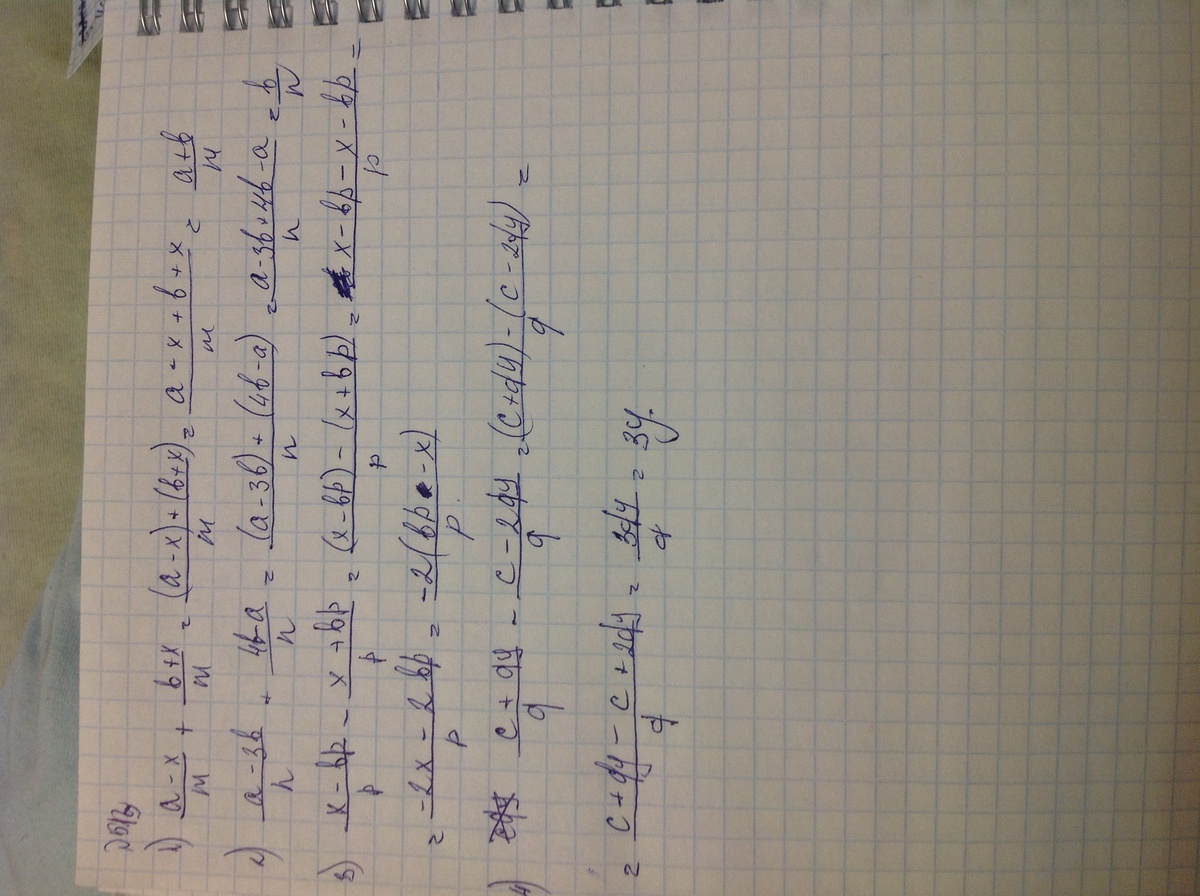 1) (a-x)/m + (b+x)/m = ((a-x)+(b+x))/m = (a-x+b+x)/m = (a+b)/m
2) (a-3b)/n + (4b-a)/n = ((a-3b)+(4b-a))/n = (a-3b+4b-a)/n = b/n
3) (x-bp)/p - (x+bp)/p = ((x-bp)-(x+bp))/p = (x-bp-x-bp)/p =
= (-2x-2bp)/p = (-2(bp-x))/p.
4) (c+qy)/q - (c-2qy)/q = ((c+dy)-(c-2dy))/q =
= (c+dy-c+2dy)/d = 3dy/d = 3y.